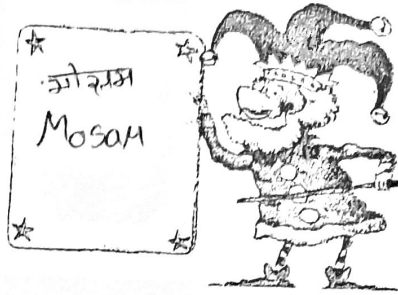 मोसम
Mosam